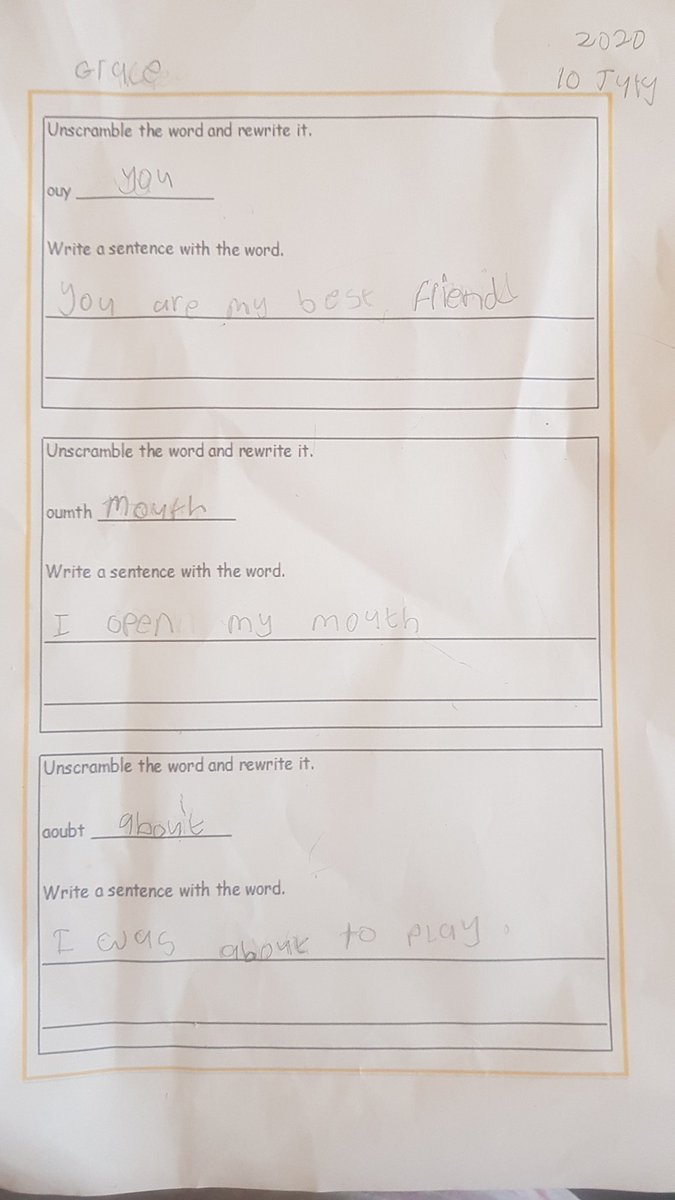 2020
Grace
10 July
Unscramble the word and rewrite it.
ouy you
Write a sentence with the word.
You are my best friend
Unscramble the word and rewrite it.
oumth Mouth
Write a sentence with the word.
I open my mouth
Unscramble the word and rewrite it.
aoubt about
Write a sentence with the word.
I was about to play.